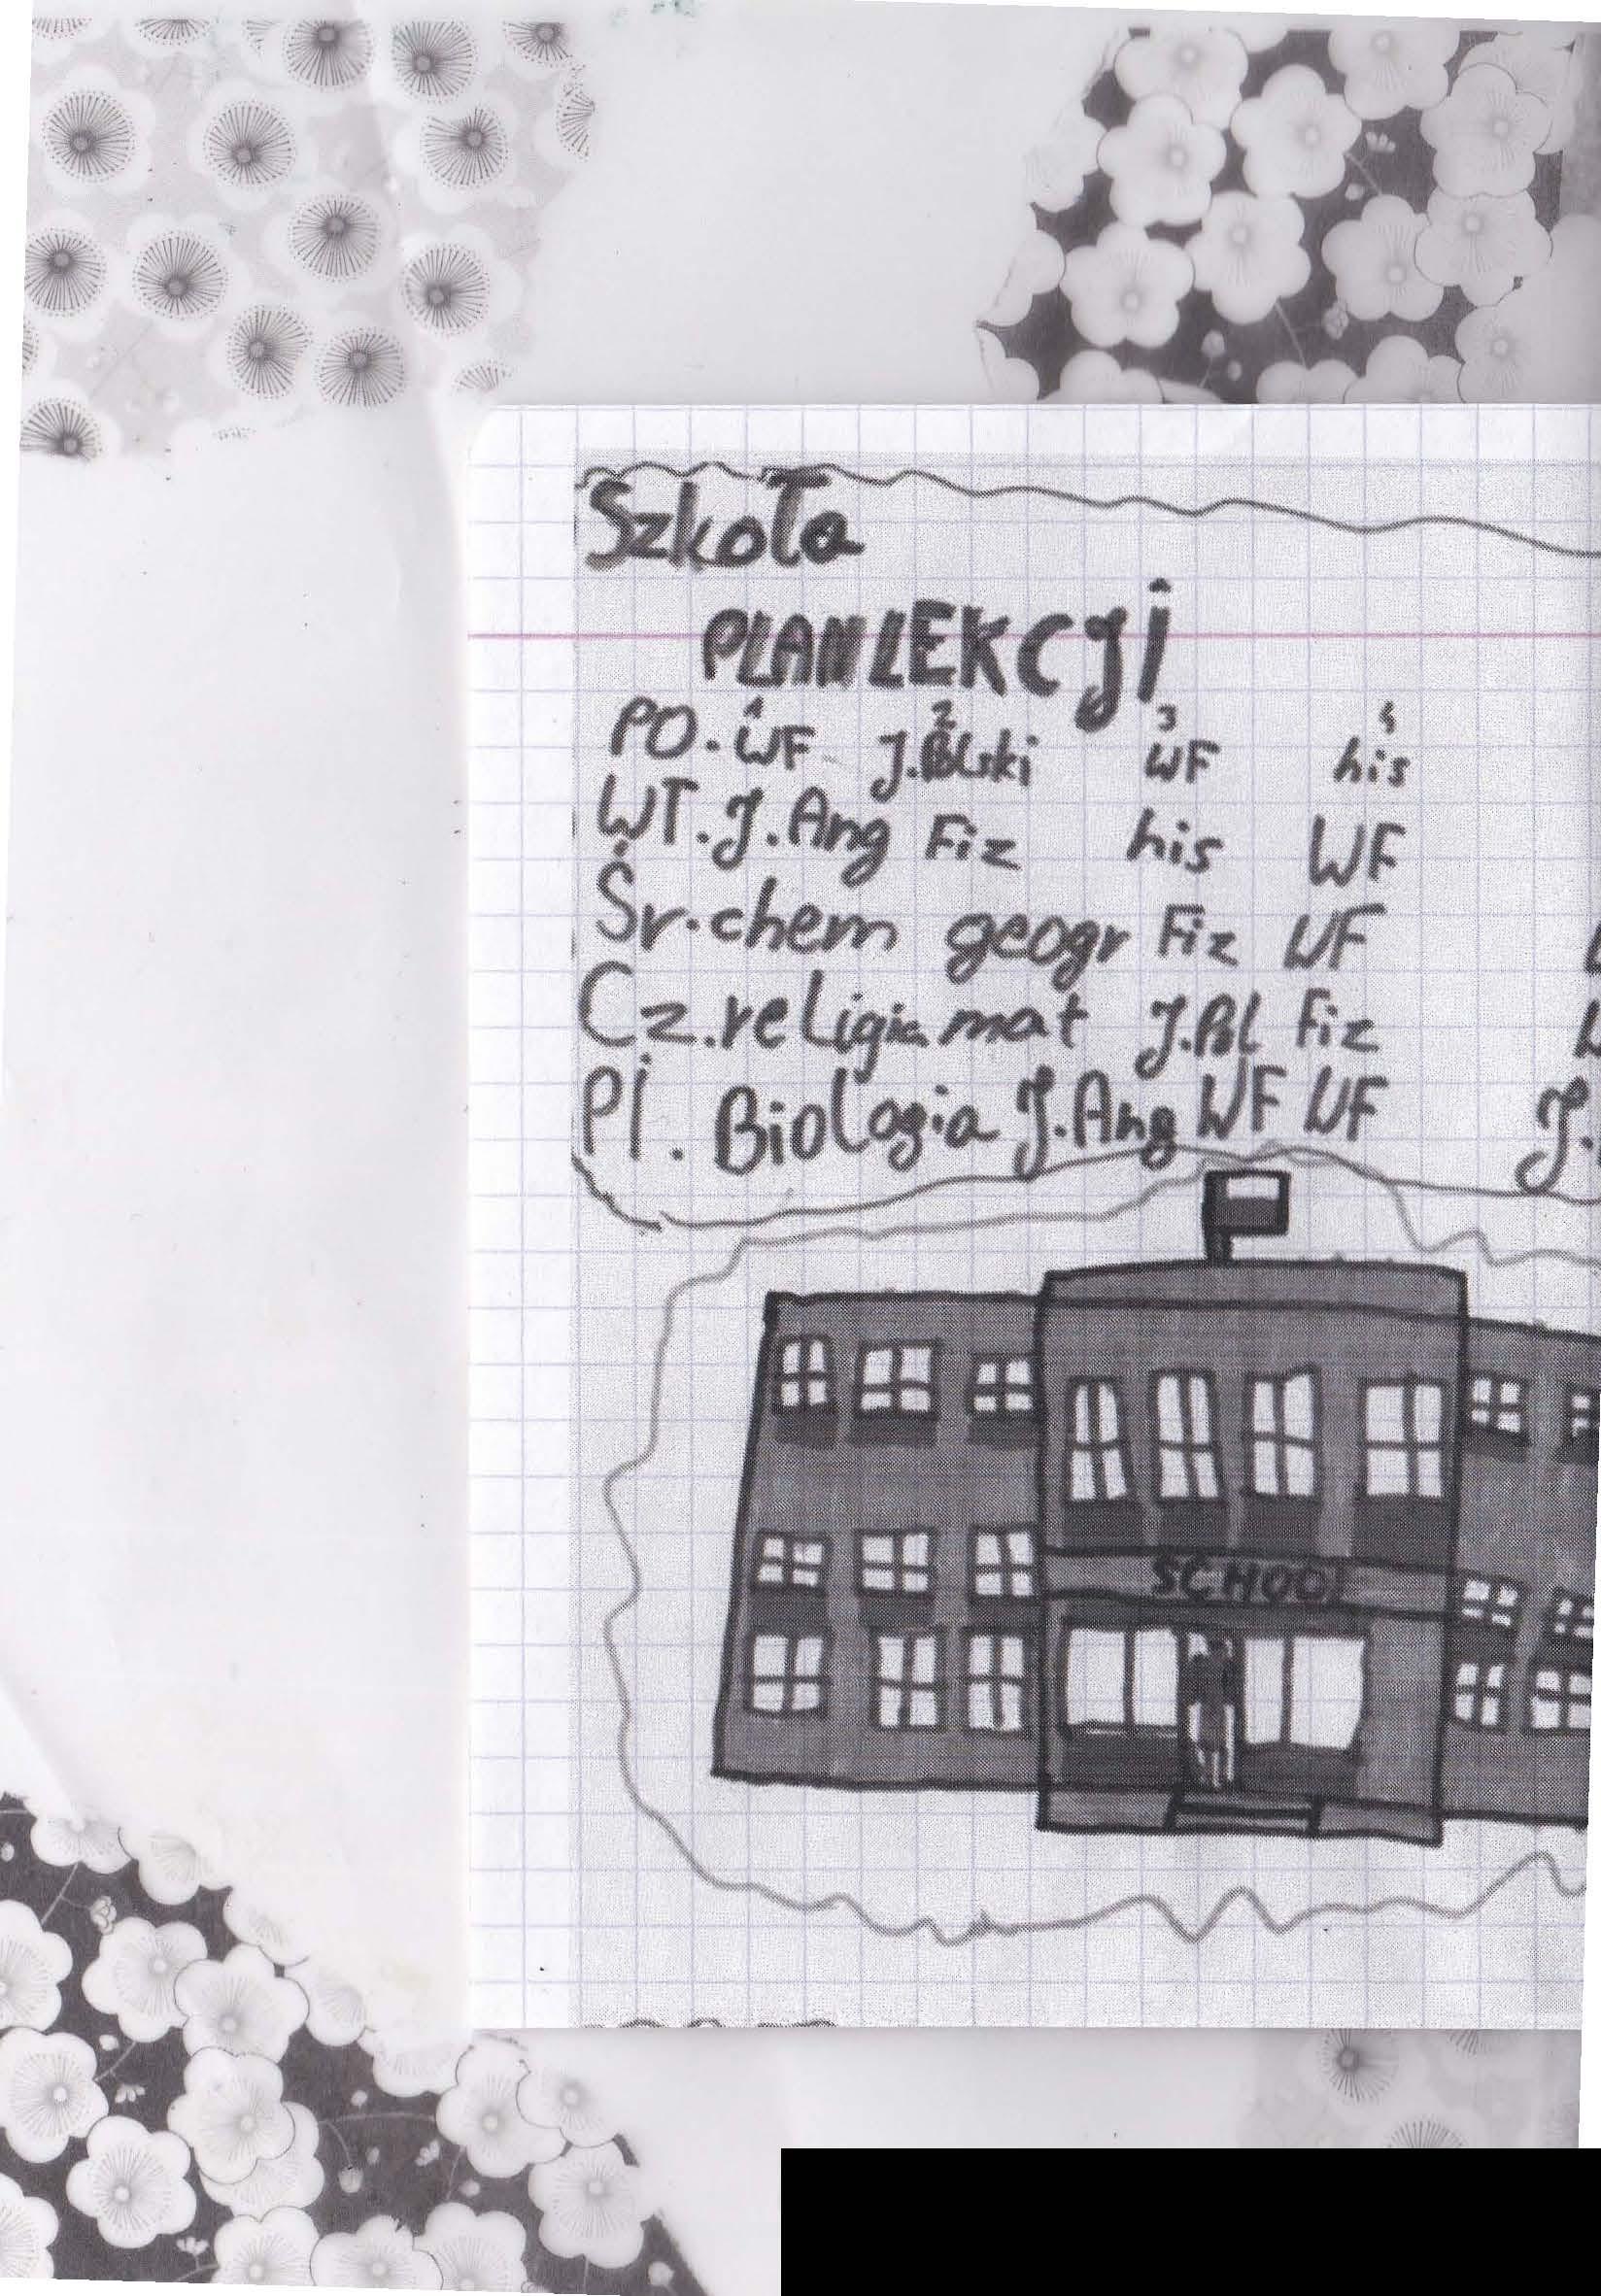 Szkoła
PLAN LEKCJI
1 2 3 4
PO. WF J. Polski WF his
WT. J. Ang Fiz his WF
Śr. chem geogr Fiz WF
Cz. religia mat J. Pol Fiz
Pi. Biologia J. Ang WF WF J.
SCHOOL